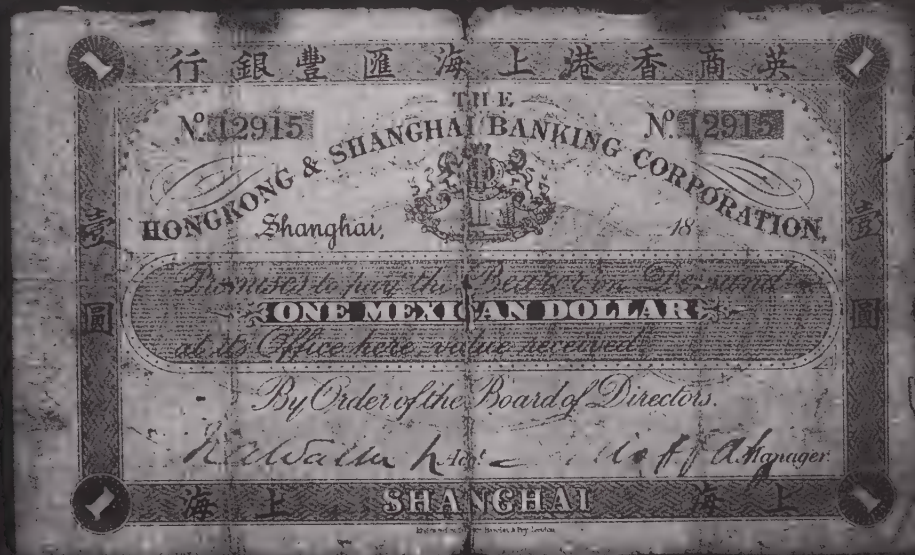 行銀豐匯海上港香商英
THE
Nº 12915 Nº 12915
HONGKONG & SHANGHAI BANKING CORPORATION,
Shanghai, 18
壹圓 壹圓
Promises to pay the Bearer on Demand
ONE MEXICAN DOLLAR
at its Office here, value received
By Order of the Board of Directors.
Manager
海上 SHANGHAI 海上
1 1
1 1